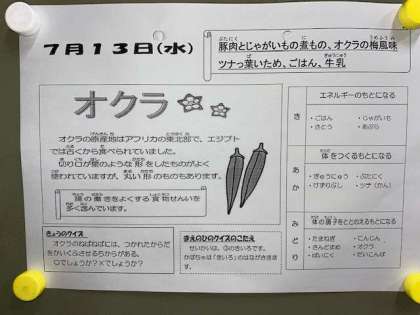 7月13日(水)
豚肉とじゃがいもの煮もの、オクラの梅風味
ツナっ葉いため、ごはん、牛乳
オクラ
オクラの原産地はアフリカの東北部で、エジプト
では古くから食べられていました。
切り口が星のような形をしたものがよく
使われていますが、丸い形のものもあります。
腸の働きをよくする食物せんいを
多く含んでいます。
きょうのクイズ
オクラのねばねばには、つかれたからだ
をかいくふさせるちからがある。
○でしょうか?×でしょうか?
きえのひのクイズのこたえ
せいかいは、③のきいろです。
かぼちゃは「きいろ」のはながさきま
す。
き
エネルギーのもとになる
・ごはん
・じゃがいも
・さとう
・あぶら
あか
体をつくるもとになる
・ぎゅうにゅう
・ぶたにく
・けずりぶし
・ツナ(かん)
みどり
体の調子をととのえるもとになる
・たまねぎ
・にんじん
・さんどまめ
・オクラ
・ばいにく
・だいこんば